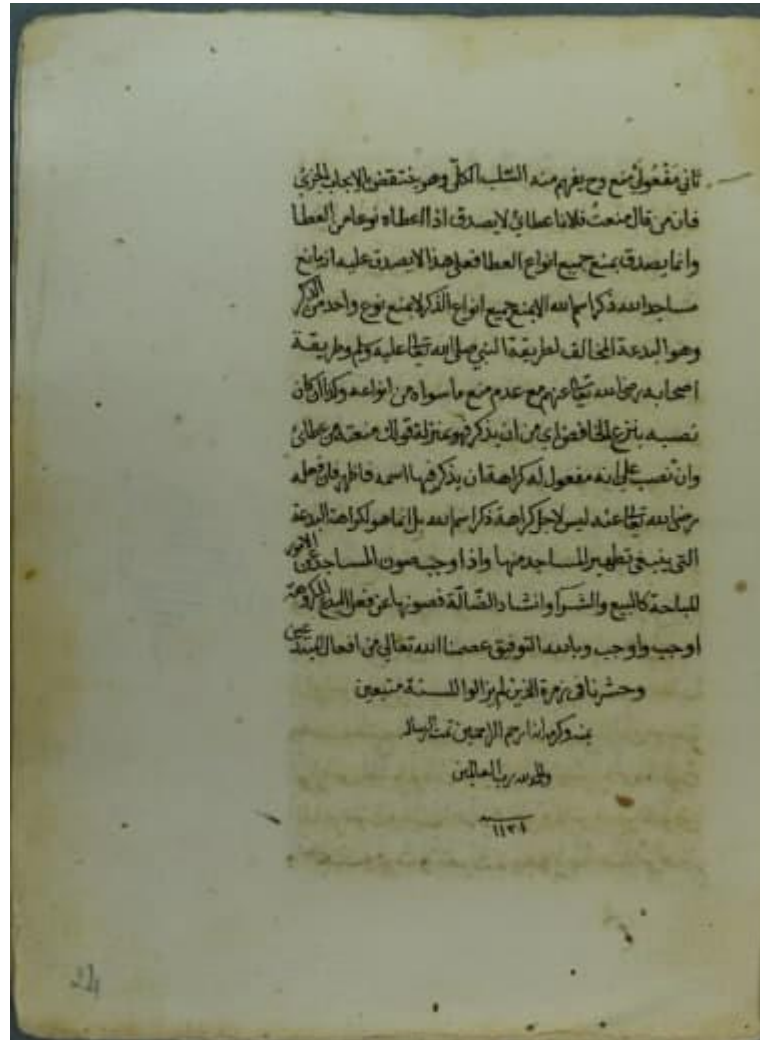 ثاني مَفْعُولَيْ منع وح يفهم منه السّلب الكلّي وهو ينتقض بالايجاب الجزئي
فان من قال منعتُ فلانا عطائي لا يصدق اذا اعطاه نوعا من العطا
وانما يصدق بمنع جميع انواع العطا فعلى هذا لا يصدق عليه انه مانع
مساجد الله ذكر اسم الله الا بمنع جميع انواع الذكر لا بمنع نوع واحد من الذكر
وهو البدعة المخالف لطريقة النبي صلى الله تعالى عليه وسلم وطريقة
اصحابه رضى الله تعالى عنهم مع عدم منع ما سواه من انواعه وكذا ان كان
نصبه بنزع الخافض اي من ان يذكر فهو بمنزلة قولك منعته من عطائي
وان نصب على انه مفعول له كراهة ان يذكر فيها اسمه فاظهر فان فعله
رضى الله تعالى عنه ليس لاجل كراهة ذكر اسم الله بل انما هو لكراهة البدعة
التي ينبغي تطهير المساجد منها واذا وجب صون المساجد عن الامور
المباحة كالبيع والشرآ وانشاد الضّالّة فصونها عن فعل البدع المكروهة
اوجب واوجب وبالله التوفيق عصمنا الله تعالى من افعال المبتدعين
وحشرنا في زمرة الذين لم يزالوا للسنة متبعين
بمنه وكرمه انه ارحم الراحمين تمت الرساله
والحمد لله رب العالمين
24